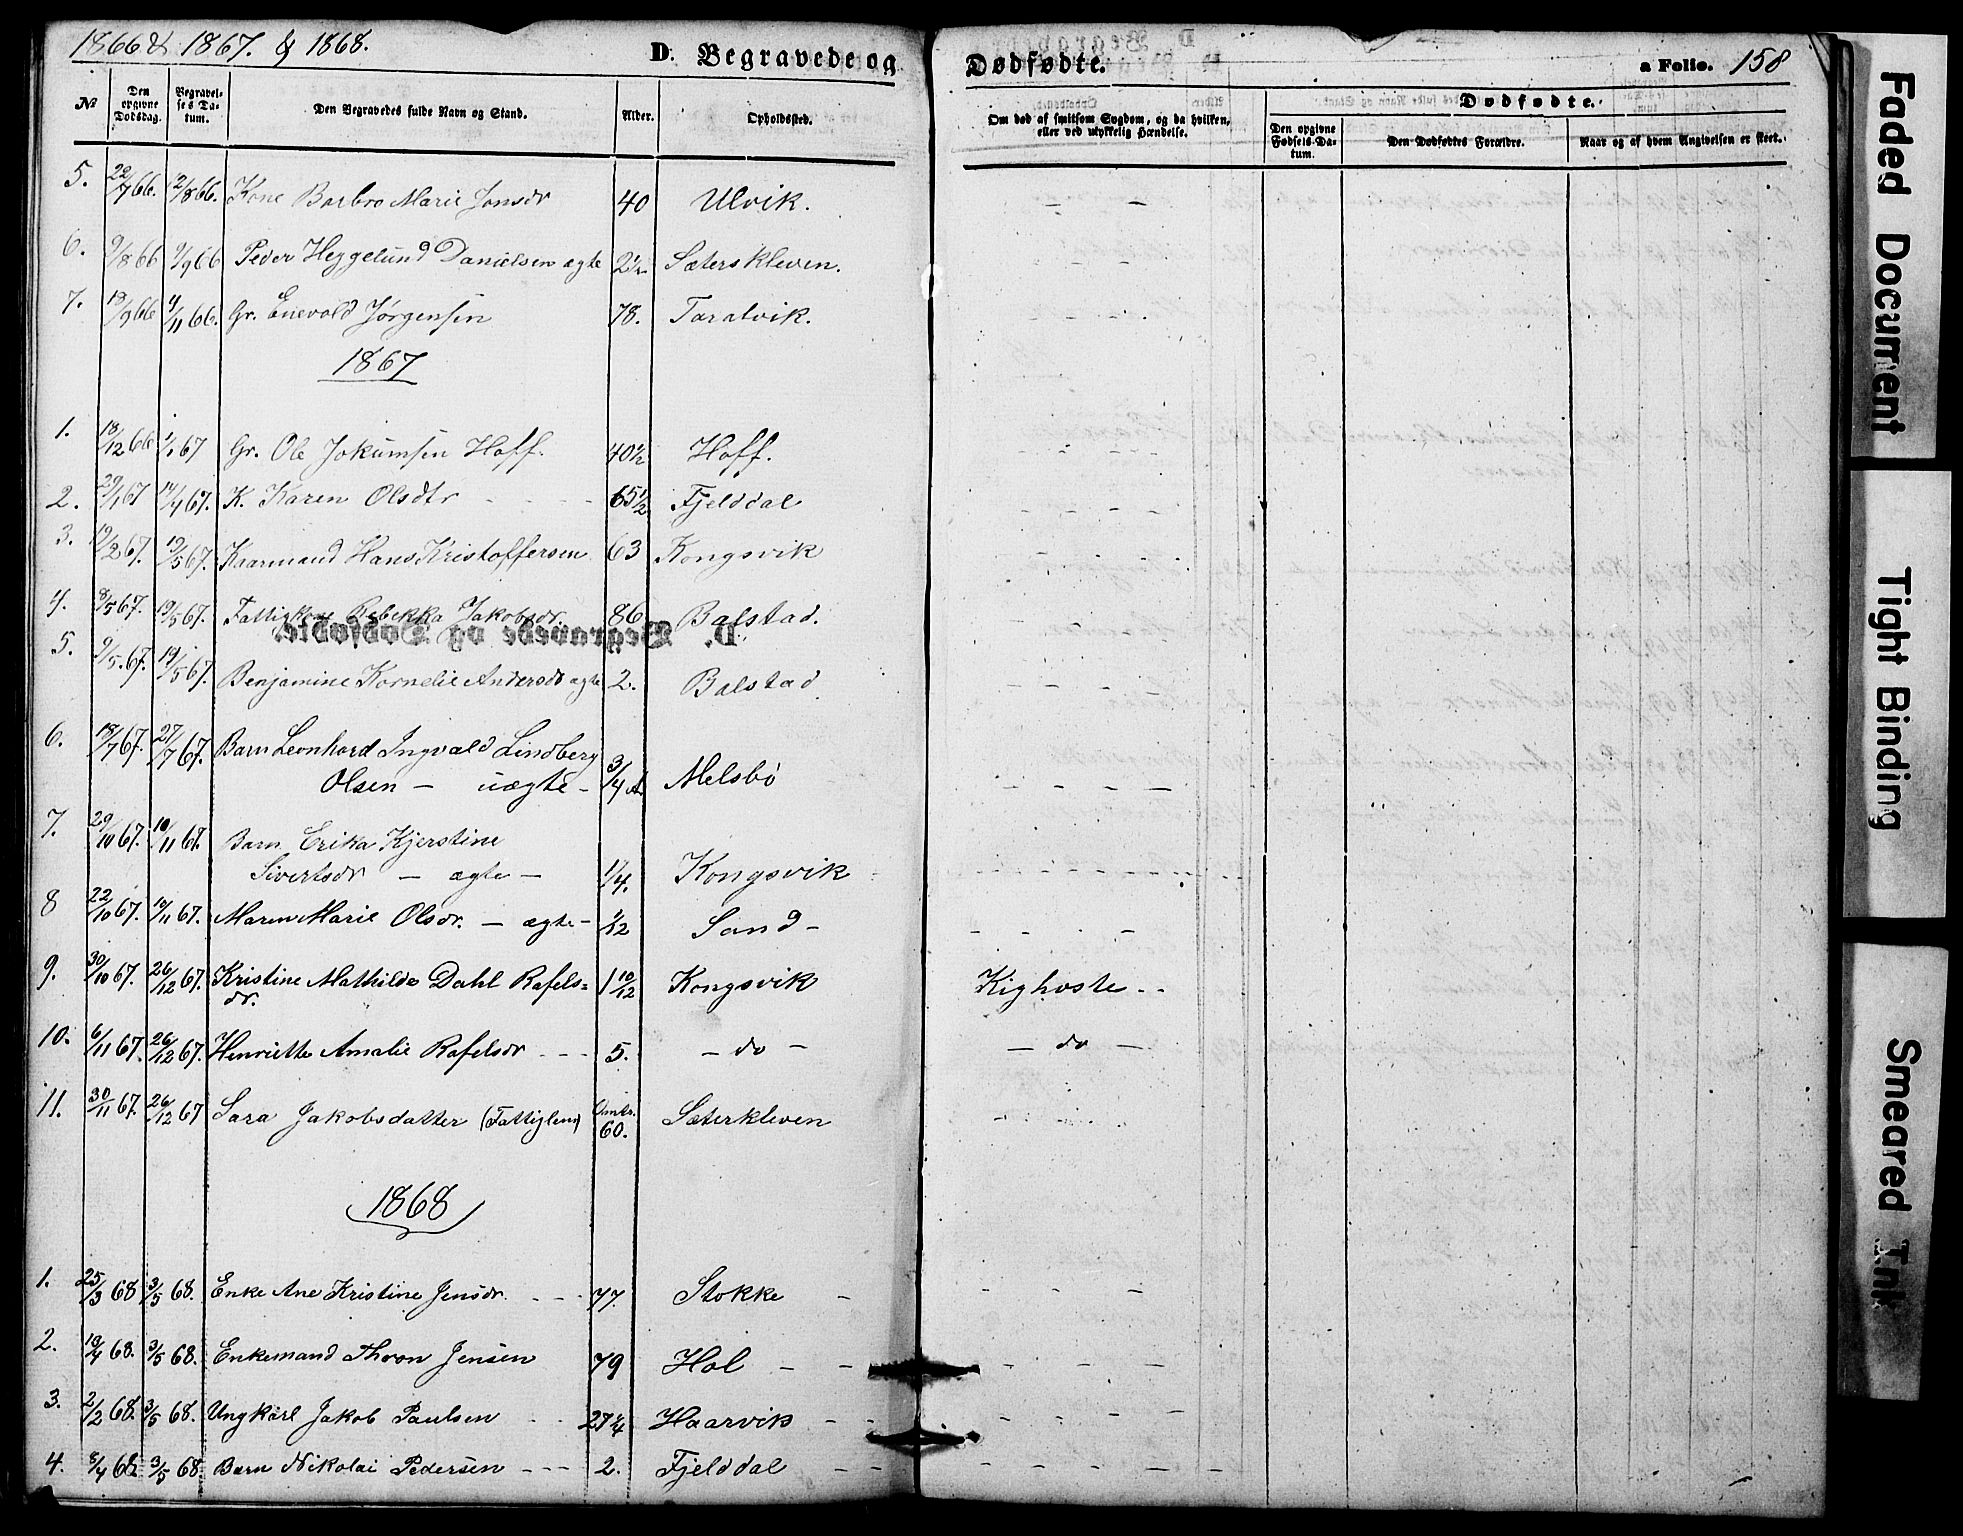 1866 & 1867. & 1868.
D. Begravede og Dødfødte. a Folio. 158
№ Den opgivne Dødsdag. Begravelses Datum. Den Begravedes fulde Navn og Stand. Alder. Opholdssted. Om død af smitsom Sygdom, og da hvilken, eller ved ulykkelig Hændelse. Dødfødte. Den opgivne Fødsels-Datum. Den Dødfødtes Forældre. Naar og af hvem Angivelsen er skeet.
5. 22/7 66. 12/8 66. Kone Barbro Marie Jonsdr 40 Ulvik. — —
6. 9/8 66 9/9 66 Peder Heggelund Danielsen ægte 2 1/2 Sæterskleven. - -
7. 13/9 66 4/11 66. Gr. Enevold Jørgensen 78. Taralvik.
1867
1. 18/12 66 1/1 67 Gr. Ole Jokumsen Hoff. 40 1/2 Hoff. - - -
2. 29/1 67 14/4 67. K. Karen Olsdtr - - - - 65 1/2 Fjelddal
3. 12/2 67. 19/5 67. Kaarmand Hans Kristoffersen 63 Kongsvik
4. 8/5 67. 19/5 67. Fattigkone Rebekka Jakobsdr. 86 Balstad.
5. 9/5. 67. 19/5 67. Benjamine Kornelie Andersdr ægte 2. Balstad
6. 18/7 67. 27/7 67. Barn Leonhard Ingvald Lindberg
Olsen — uægte - 3/4 A. Melsbö - - - —
7. 29/10 67. 10/11 67. Barn Erika Kjerstine
Sivertsdr — ægte — 1/4. Kongsvik
8 22/10 67. 10/11 67. Maren Marie Olsdr. — ægte - 1/12 Sand - - - -
9. 30/10 67. 26/12 67. Kristine Mathilde Dahl Rafels=
dr. 1 10/12 Kongsvik Kighoste - -
10. 6/11 67. 26/12 67. Henriette Amalie Rafelsdr - - - 5. - do - — do —
11. 30/11 67. 26/12 67 Sara Jakobsdatter (Fattiglem) Omtr. 60. Sæterkleven
1868
1. 25/3 68 3/5 68. Enke Ane Kristine Jensdr. - - - 77. Stokke - - - - -
2. 19/4 68. 3/5 68. Enkemand Thron Jensen 79 Hol - - - - -
3. 2/2 68. 3/5 68. Ungkarl Jakob Paulsen - - 27 3/4 Haarvik - - - - -
4. 8/4 68 3/5 68 Barn Nikolai Pedersen - - - 2. Fjelddal - - - - -
Faded Document
Tight Binding
Smeared Ink